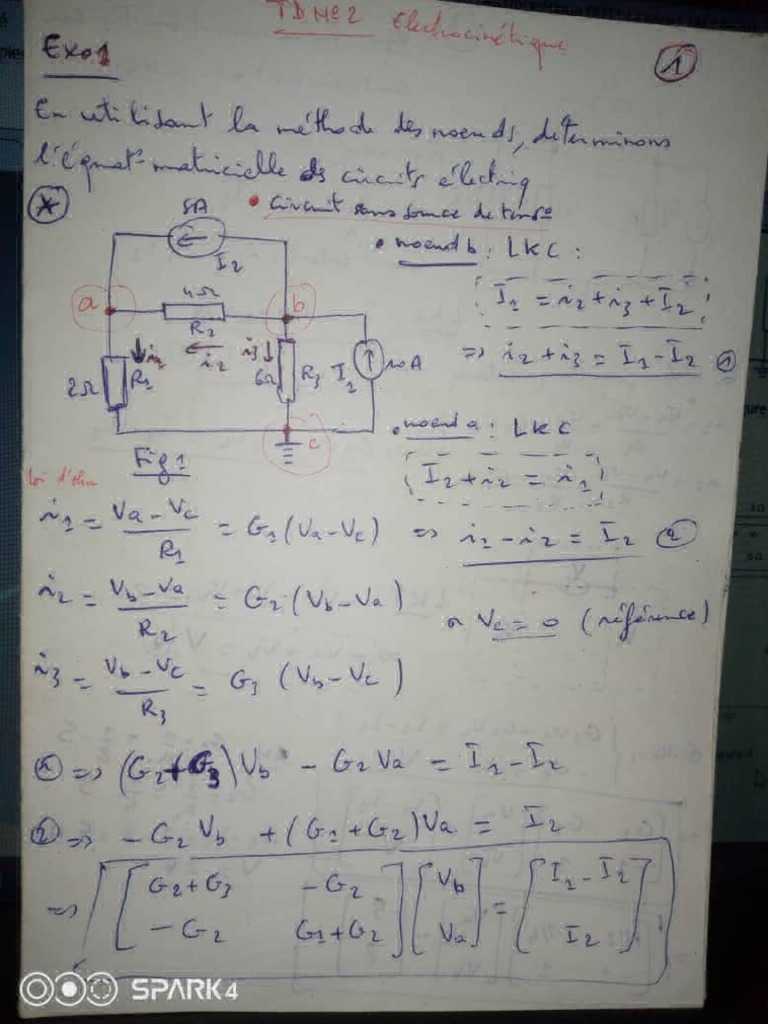 TD N°2 Electrocinétique
1
Exo1
En utilisant la méthode des noeuds, déterminons
l'équat° matricielle ds circuits électriq
* • circuit sans source de tens°
5A
I2
a 4Ω b
R2
i1 i2 i3
2Ω R1 6Ω R3 I1 10A
c
Fig 1
• noeud b : LKC :
I1 = i2 + i3 + I2
=> i2 + i3 = I1 - I2 ①
• noeud a : LKC
I2 + i2 = i1
=> i1 - i2 = I2 ②
Loi d'ohm
i1 = Va - Vc / R1 = G1 (Va - Vc)
i2 = Vb - Va / R2 = G2 (Vb - Va)
or Vc = 0 (référence)
i3 = Vb - Vc / R3 = G3 (Vb - Vc)
① => (G2 + G3) Vb - G2 Va = I1 - I2
② => - G2 Vb + (G1 + G2) Va = I2
=> [G2 + G3 - G2] [Vb] = [I1 - I2]
[- G2 G1 + G2] [Va] [I2]
SPARK 4